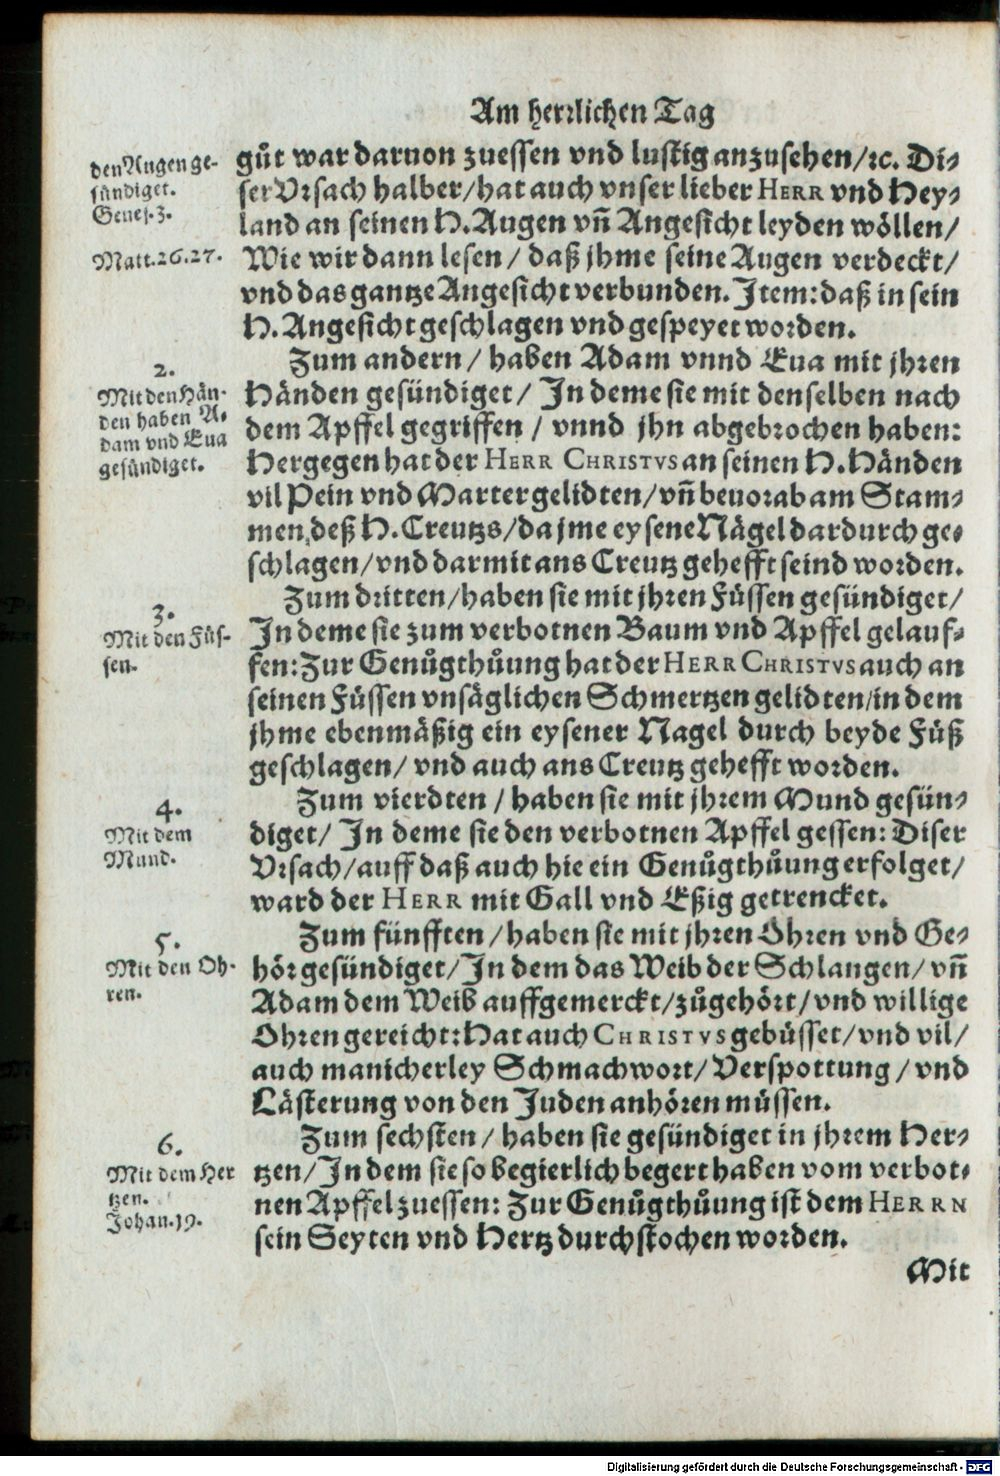 Am herrlichen Tag
den Augen ge-
sündiget.
Genes. 3.
Matt. 26. 27.
gůt war daruon zuessen vnd lustig anzusehen/ ꝛc. Di-
ser Vrsach halber/ hat auch vnser lieber HERR vnd Hey-
land an seinen H. Augen vñ Angesicht leyden wöllen/
Wie wir dann lesen/ daß jhme seine Augen verdeckt/
vnd das gantze Angesicht verbunden. Item: daß in sein
H. Angesicht geschlagen vnd gespeyet worden.
2.
Mit den Hän-
den haben A-
dam vnd Eua
gesündiget.
Zum andern/ haben Adam vnnd Eua mit jhren
Händen gesündiget/ In deme sie mit denselben nach
dem Apffel gegriffen/ vnnd jhn abgebrochen haben:
Hergegen hat der HERR CHRISTVS an seinen H. Händen
vil Pein vnd Marter gelidten/ vñ beuorab am Stam-
men deß H. Creutzs/ da jme eysene Nägel dardurch ge-
schlagen/ vnd darmit ans Creutz gehefft seind worden.
3.
Mit den Füs-
sen.
Zum dritten/ haben sie mit jhren Füssen gesündiget/
In deme sie zum verbotnen Baum vnd Apffel gelauf-
fen: Zur Genůgthůung hat der HERR CHRISTVS auch an
seinen Füssen vnsäglichen Schmertzen gelidten/ in dem
jhme ebenmäßig ein eysener Nagel durch beyde Füß
geschlagen/ vnd auch ans Creutz gehefft worden.
4.
Mit dem
Mund.
Zum vierdten/ haben sie mit jhrem Mund gesün-
diget/ In deme sie den verbotnen Apffel gessen: Diser
Vrsach/ auff daß auch hie ein Genůgthůung erfolget/
ward der HERR mit Gall vnd Eßig getrencket.
5.
Mit den Oh-
ren.
Zum fünfften/ haben sie mit jhren Ohren vnd Ge-
hör gesündiget/ In dem das Weib der Schlangen/ vñ
Adam dem Weib auffgemerckt/ zůgehört/ vnd willige
Ohren gereicht: Hat auch CHRISTVS gebüsset/ vnd vil/
auch manicherley Schmachwort/ Verspottung/ vnd
Lästerung von den Juden anhören müssen.
6.
Mit dem Her
tzen.
Johan. 19.
Zum sechsten/ haben sie gesündiget in jhrem Her-
tzen/ In dem sie so begierlich begert haben vom verbot-
nen Apffel zuessen: Zur Genůgthůung ist dem HERRN
sein Seyten vnd Hertz durchstochen worden.
Mit
Digitalisierung gefördert durch die Deutsche Forschungsgemeinschaft - DFG